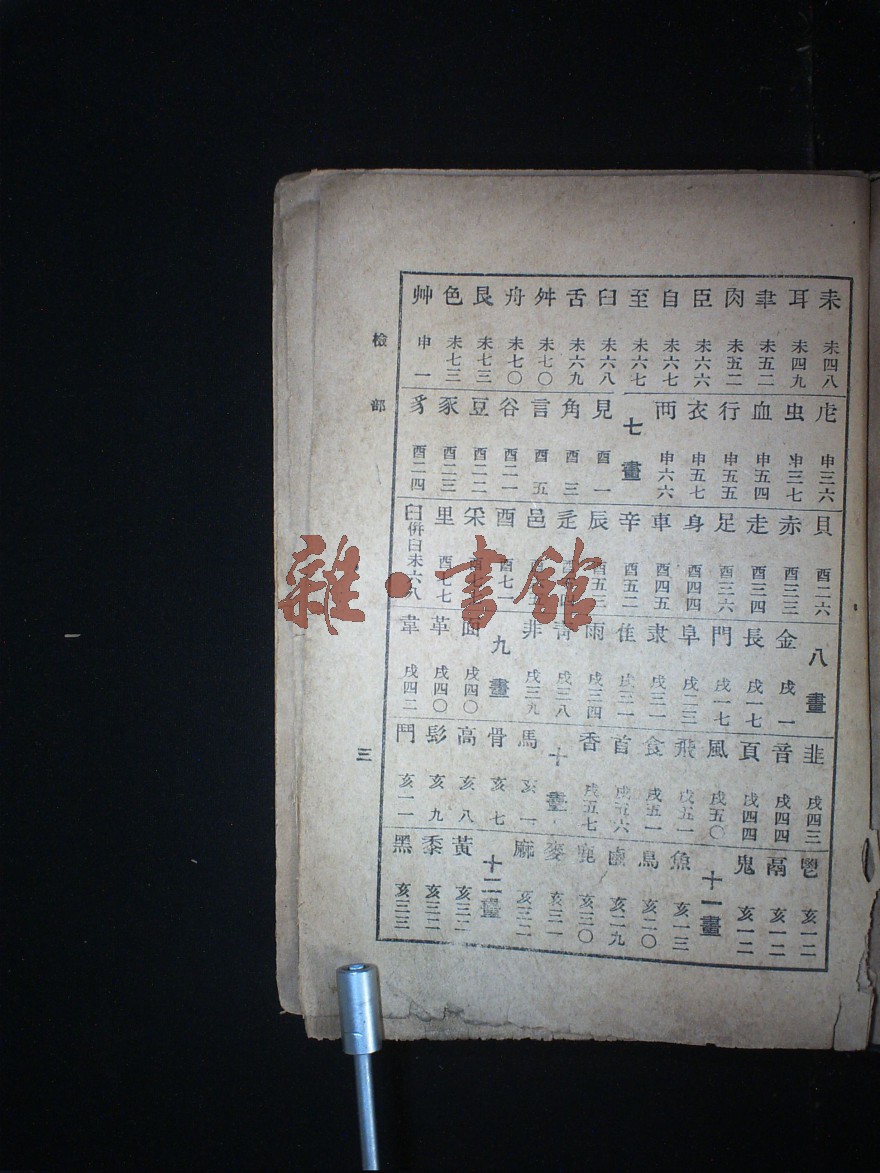 耒 未四八
耳 未四九
聿 未五二
肉 未五二
臣 未六六
自 未六七
至 未六七
臼 未六八
舌 未六九
舛 未七〇
舟 未七〇
艮 未七三
色 未七三
艸 申一
虍 申三六
虫 申三七
血 申五四
行 申五五
衣 申五七
襾 申六六
七畫
見 酉一
角 酉三
言 酉五
谷 酉二一
豆 酉二二
豕 酉二三
豸 酉二四
貝 酉二六
赤 酉三三
走 酉三四
足 酉三六
身 酉四四
車 酉四五
辛 酉五二
辰 酉五三
辵
邑
酉 酉七一
釆
里 酉七七
𦥑併臼未六八
八畫
金 戌一
長 戌一七
門 戌一七
阜 戌二三
隶 戌三一
隹 戌三一
雨 戌三四
靑 戌三八
非 戌三九
九畫
面 戌四〇
革 戌四〇
韋 戌四二
韭 戌四三
音 戌四四
頁 戌四四
風 戌五〇
飛 戌五一
食 戌五一
首 戌五六
香 戌五七
十畫
馬 亥一
骨 亥七
高 亥八
髟 亥九
鬥 亥一一
鬯 亥一二
鬲 亥一二
鬼 亥一二
十一畫
魚 亥一三
鳥 亥二〇
鹵 亥二九
鹿 亥三〇
麥 亥三一
麻 亥三二
十二畫
黃 亥三二
黍 亥三二
黑 亥三三
檢部
三
雜·書館